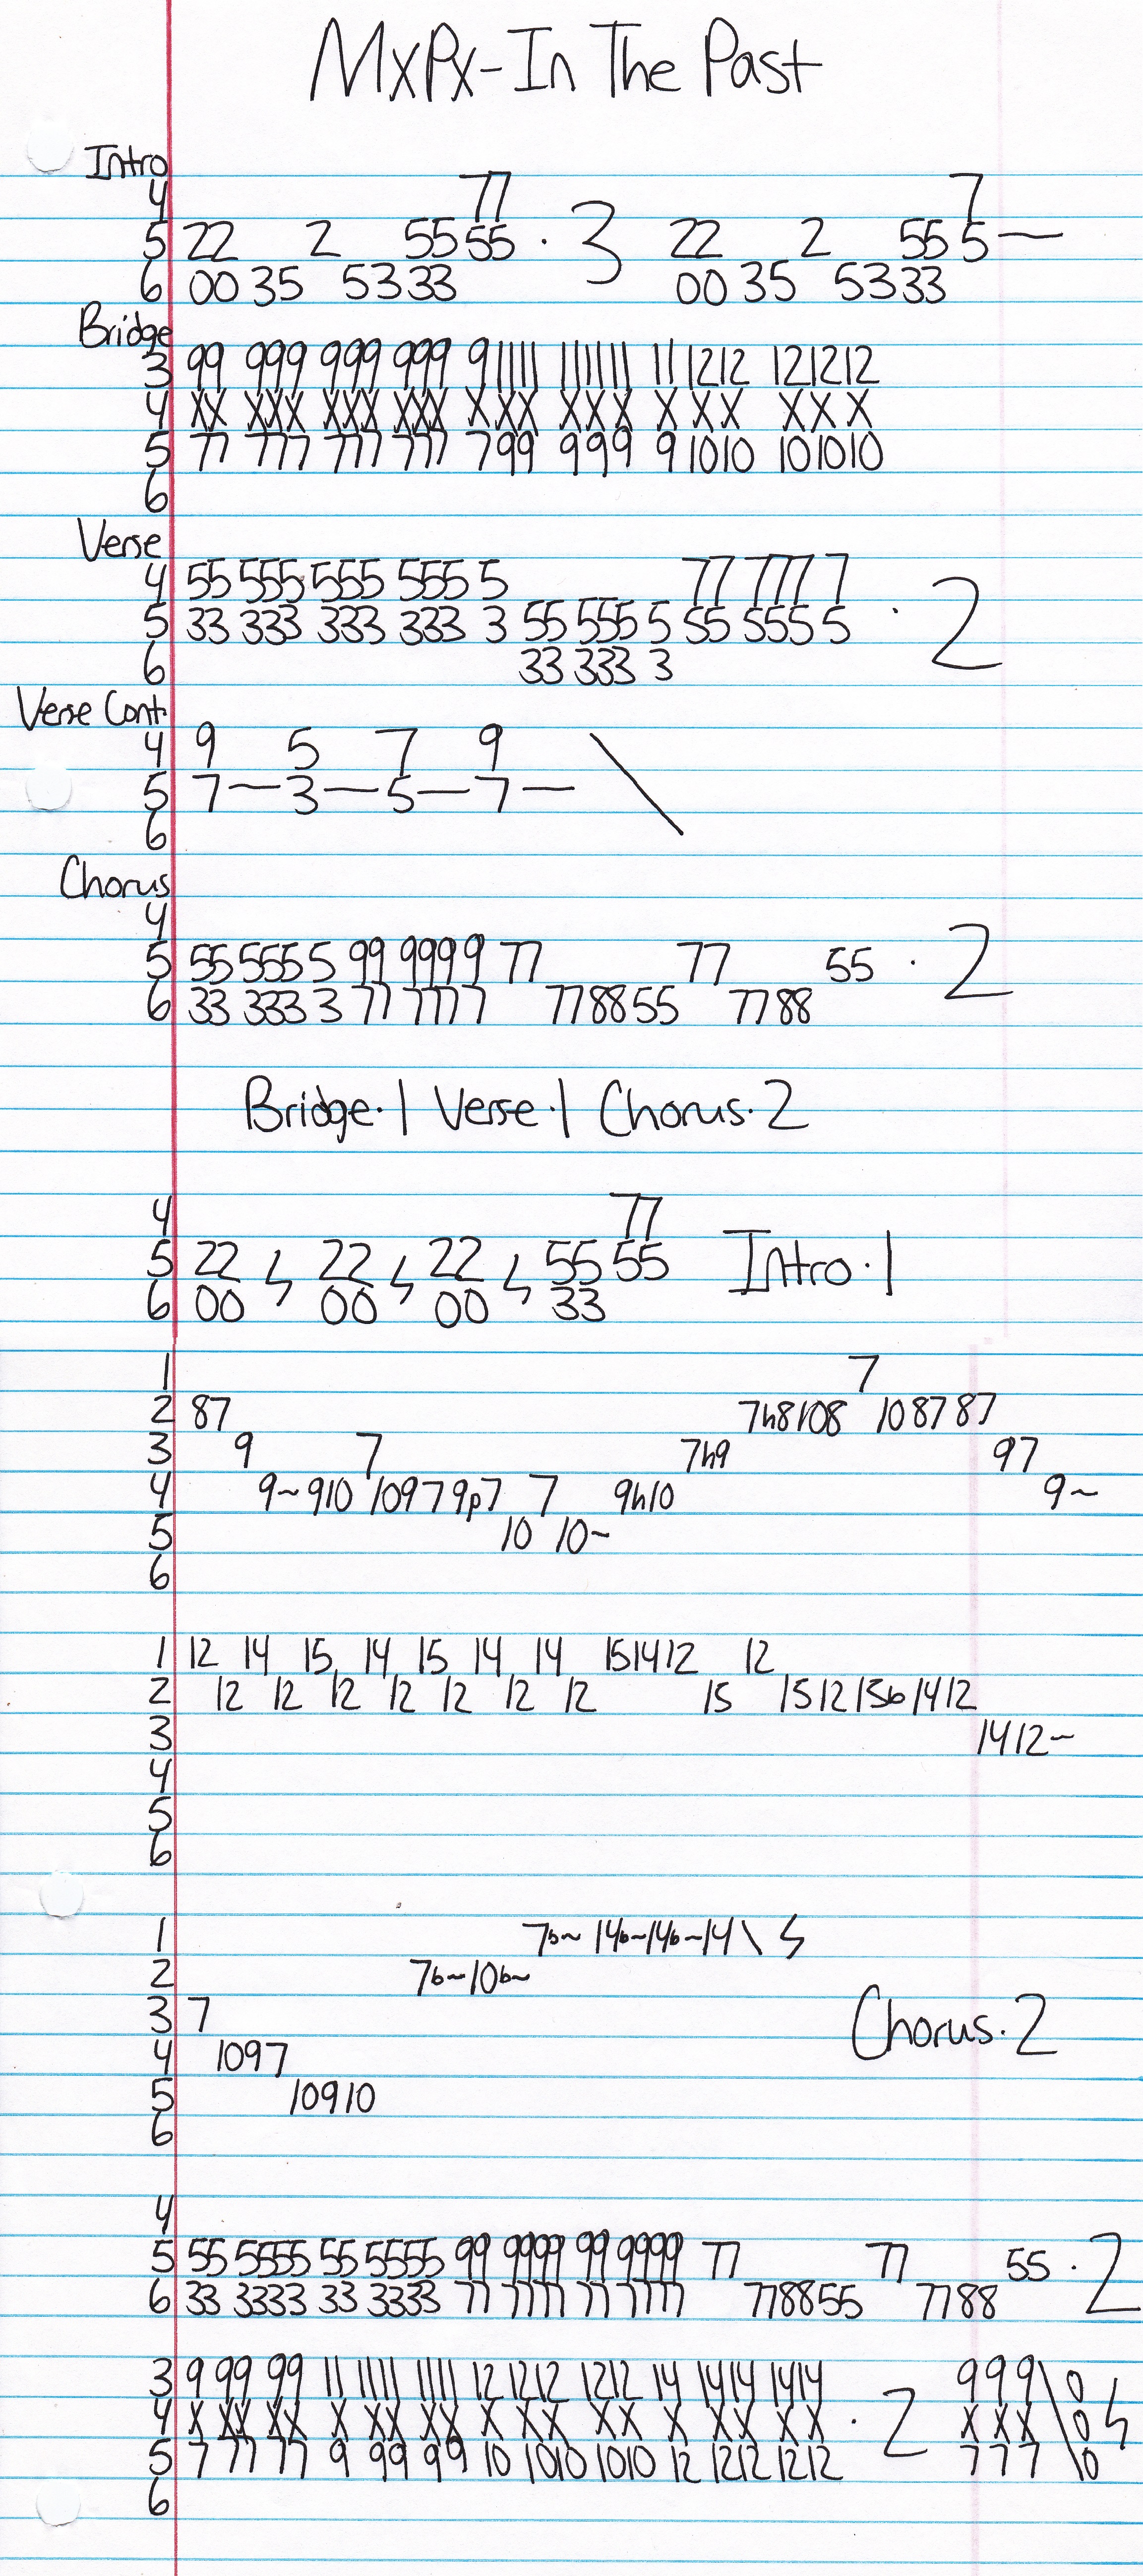 MxPx-In The Past
Intro
4 77 7
5 22 2 55 55 · 3 22 2 55 5—
6 00 35 53 33 00 35 53 33
Bridge
3 99 999 999 999 9 11 11 11 11 11 11 12 12 12 12 12
4 XX XXX XXX XXX X X X X X X X X X X X X
5 77 777 777 777 7 99 999 9 10 10 10 10 10
6
Verse
4 55 555 555 555 5 77 777 7
5 33 333 333 333 3 55 555 5 55 555 5 · 2
6 33 333 3
Verse Cont.
4 9 5 7 9 \
5 7—3—5—7—
6
Chorus
4
5 55 555 5 99 999 9 77 77 55 · 2
6 33 333 3 77 777 7 77 88 55 77 88
Bridge·1 Verse·1 Chorus·2
4 77
5 22 22 22 55 55 Intro·1
6 00 00 00 33
1 7
2 87 7h8108 108787
3 9 7 7h9 97
4 9~910 109799p7 7 9h10 9~
5 10 10~
6
1 12 14 15 14 15 14 14 151412 12
2 12 12 12 12 12 12 12 15 151215b1412
3 1412~
4
5
6
1 7b~ 14b~14b~14\
2 7b~10b~
3 7 Chorus·2
4 1097
5 10910
6
4
5 55 5555 55 5555 99 9999 99 9999 77 77 55 · 2
6 33 3333 33 3333 77 7777 77 7777 778855 7788
3 9 99 99 11 1111 1111 12 1212 1212 14 1414 1414 999\0
4 X XX XX X XX XX X XX XX X XX XX · 2 XXX 0
5 7 77 77 9 99 99 10 1010 1010 12 1212 1212 777 0
6